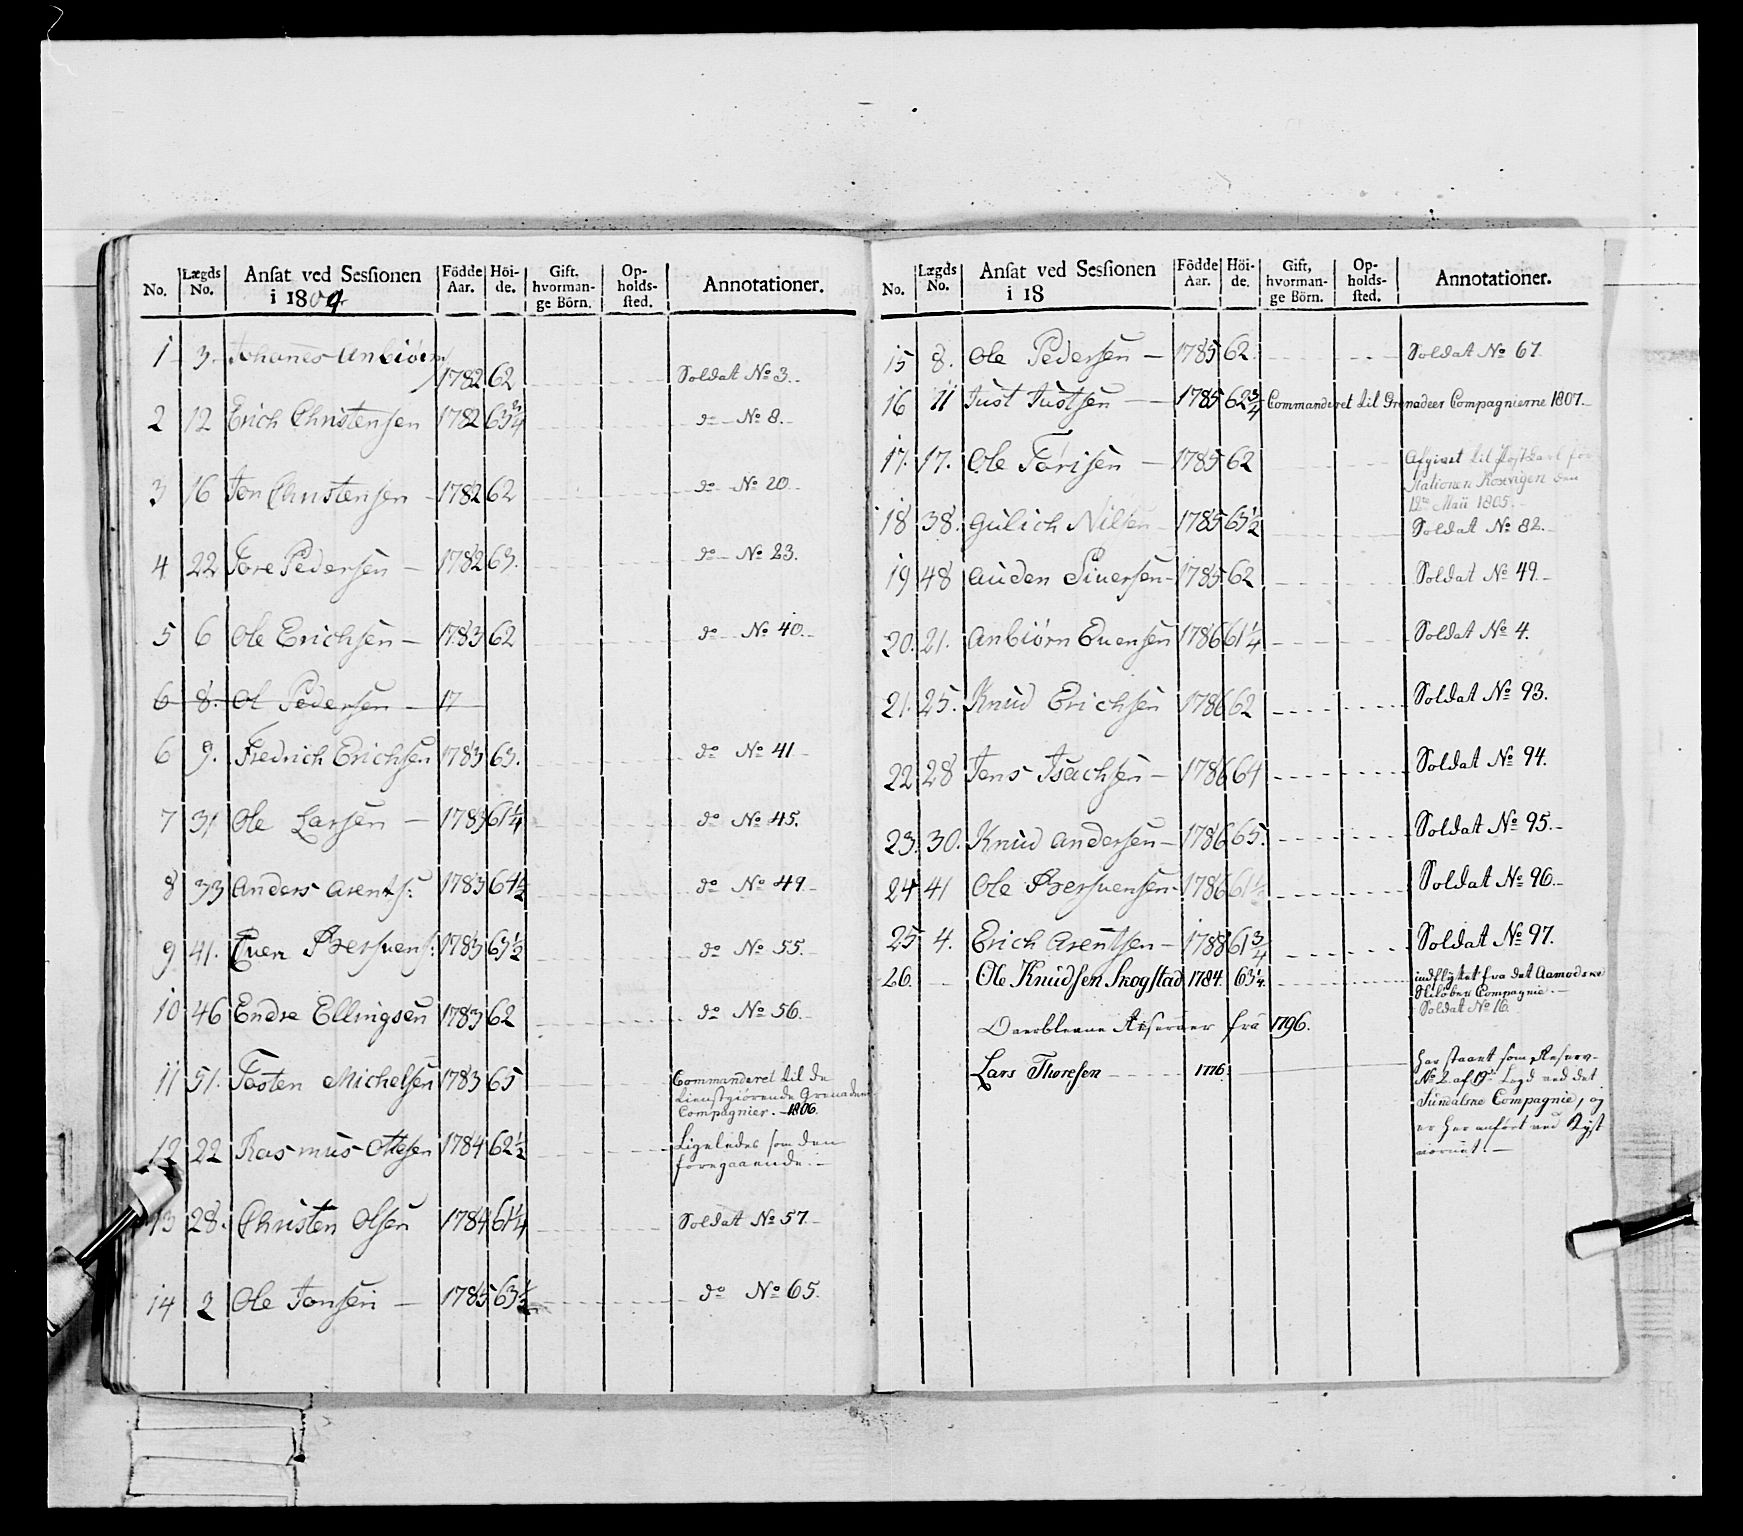 No. Lægds No. Ansat ved Sessionen i 1804 Födde Aar. Höi-de. Gift, hvorman-ge Börn. Op-holds-sted. Annotationer.
1 3 Johannes Anbiörns 1782 62 Soldat No 3.
2 12 Erich Christensen 1782 63 3/4 do No 8.
3 16 Jon Christensen 1782 62 do No 20
4 22 Tore Pedersen 1782 63. do No 23.
5 6 Ole Erichsen 1783 62 do No 40.
6 8. Ol Pedersen 17
6 9. Fredrich Erichsen 1783 63. do No 41
7 31 Ole Larsen 1783 61 1/4 do No 45.
8 33 Anders Arents: 1783 64 1/2 do No 49
9 41. Even 1783 63 1/2 do No 55.
10 46 Endre Ellingsen 1783 62 do No 56.
11 51. Tosten Michelsen 1783 65 Commanderet til de
tienstgiörende Grenadeer
Compagnier. 1806.
12 22 Rasmus Ottesen 1784 62 1/2 Ligeledes som den
foregaaende.
13 28. Christen Olsen 1784 61 1/4 Soldat No 57
14 2 Ole Jonsen 1785 63 1/2 do No 65.
No. Lægds No. Ansat ved Sessionen i 18 Födde Aar. Höi-de. Gift, hvorman-ge Börn. Op-holds-sted. Annotationer.
15 8. Ole Pedersen 1785 62 Soldat No 67
16 11 Just Justsen 1785 62 3/4 Commanderet til Grenadeer Compagnierne 1807.
17. 17. Ole Törisen 1785 62 Afgivet til Postkarl for
Stationen Kosvigen den
12te Maii 1805.
18 38. Gulich Nilsen 1785 63 1/2 Soldat No 82.
19 48 Auden Siversen 1785 62 Soldat No 49.
20. 21. Anbiörn Evensen 1786 61 1/4 Soldat No 4.
21. 25. Knud Erichsen 1786 62 Soldat No 93.
22 28 Jens Isachsen 1786 64 Soldat No 94.
23. 30. Knud Andersen 1786 65. Soldat No 95.
24 41 Ole 1786 61 1/2 Soldat No 96.
25 4. Erich Arentsen 1788 61 3/4 Soldat No 97.
26. Ole Knudsen Skogstad 1784. 63 1/4. indflyttet fra det Aamodske
Skiløber Compagnie.
Soldat No 16.
Overblevne Reserver fra 1796.
Lars Thoresen 1776. har staaet som Reserv-
No 2 af 19de Legd ved det
Sundalske Compagnie, og
er her anført ved Kyst
værnet.